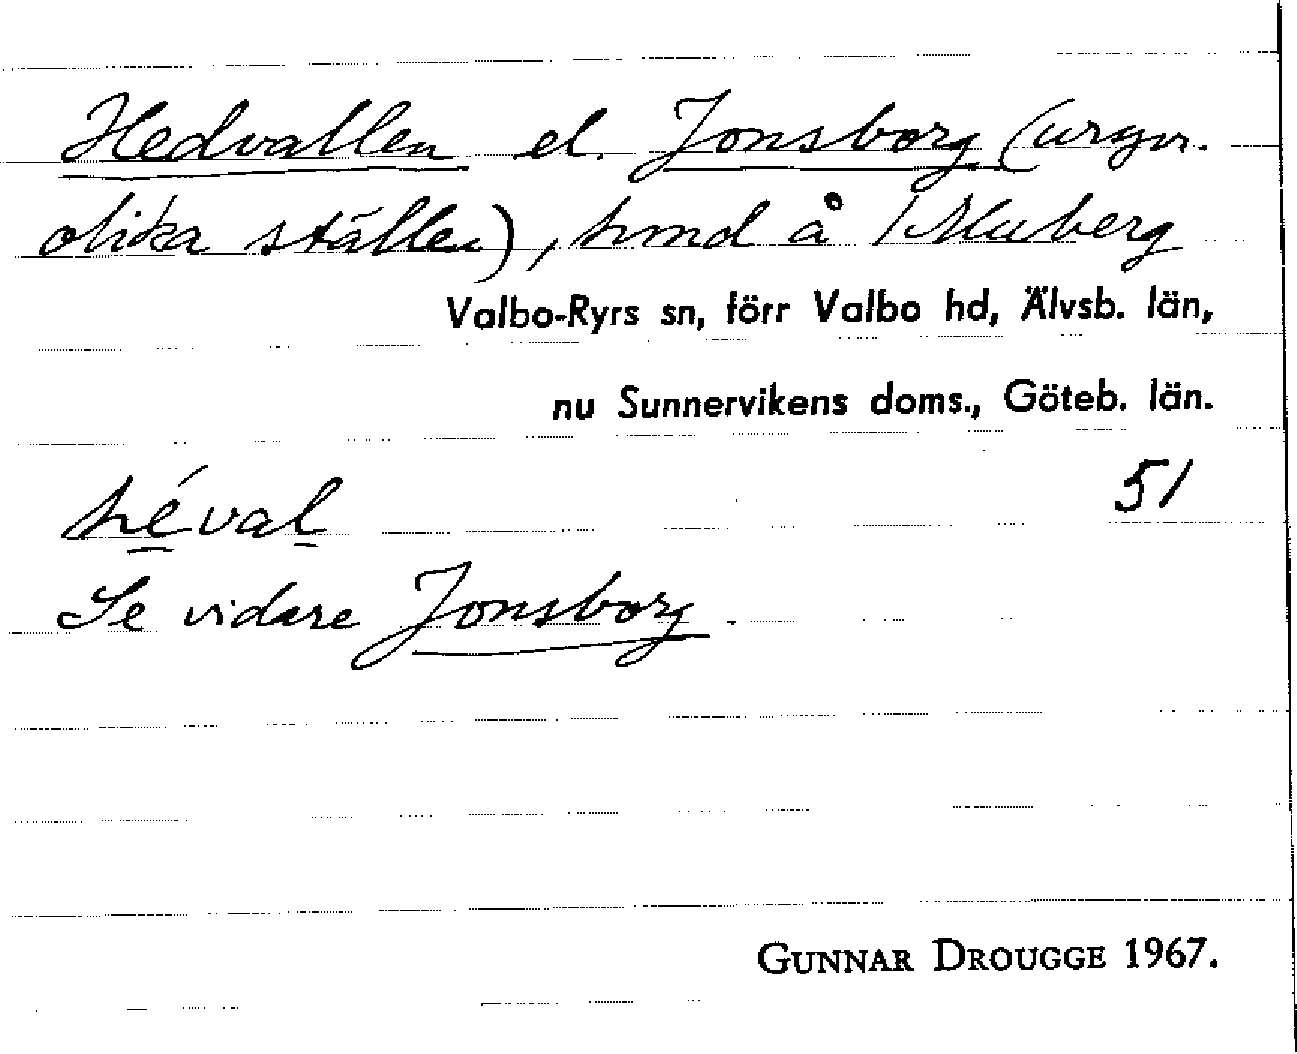 Hedvallen el. Jonsborg (urspr.
olika ställen), hmd å 1 Muberg
Valbo-Ryrs sn, förr Valbo hd, Älvsb. län,
nu Sunnervikens doms., Göteb. län.
héval 51
Se vidare Jonsborg.
GUNNAR DROUGGE 1967.